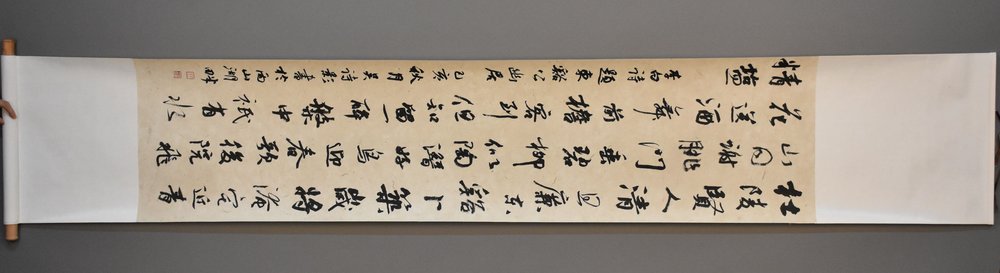 杜陵賢人清且廉東谿卜築歲將淹宅近青
山同謝朓門垂碧柳似陶潛好鳥迎春歌後院飛
花送酒舞前檐客到但知留一醉盤中祇有水
精鹽 李白詩題東谿公幽居 己亥秋月吳詩書於西山湖畔